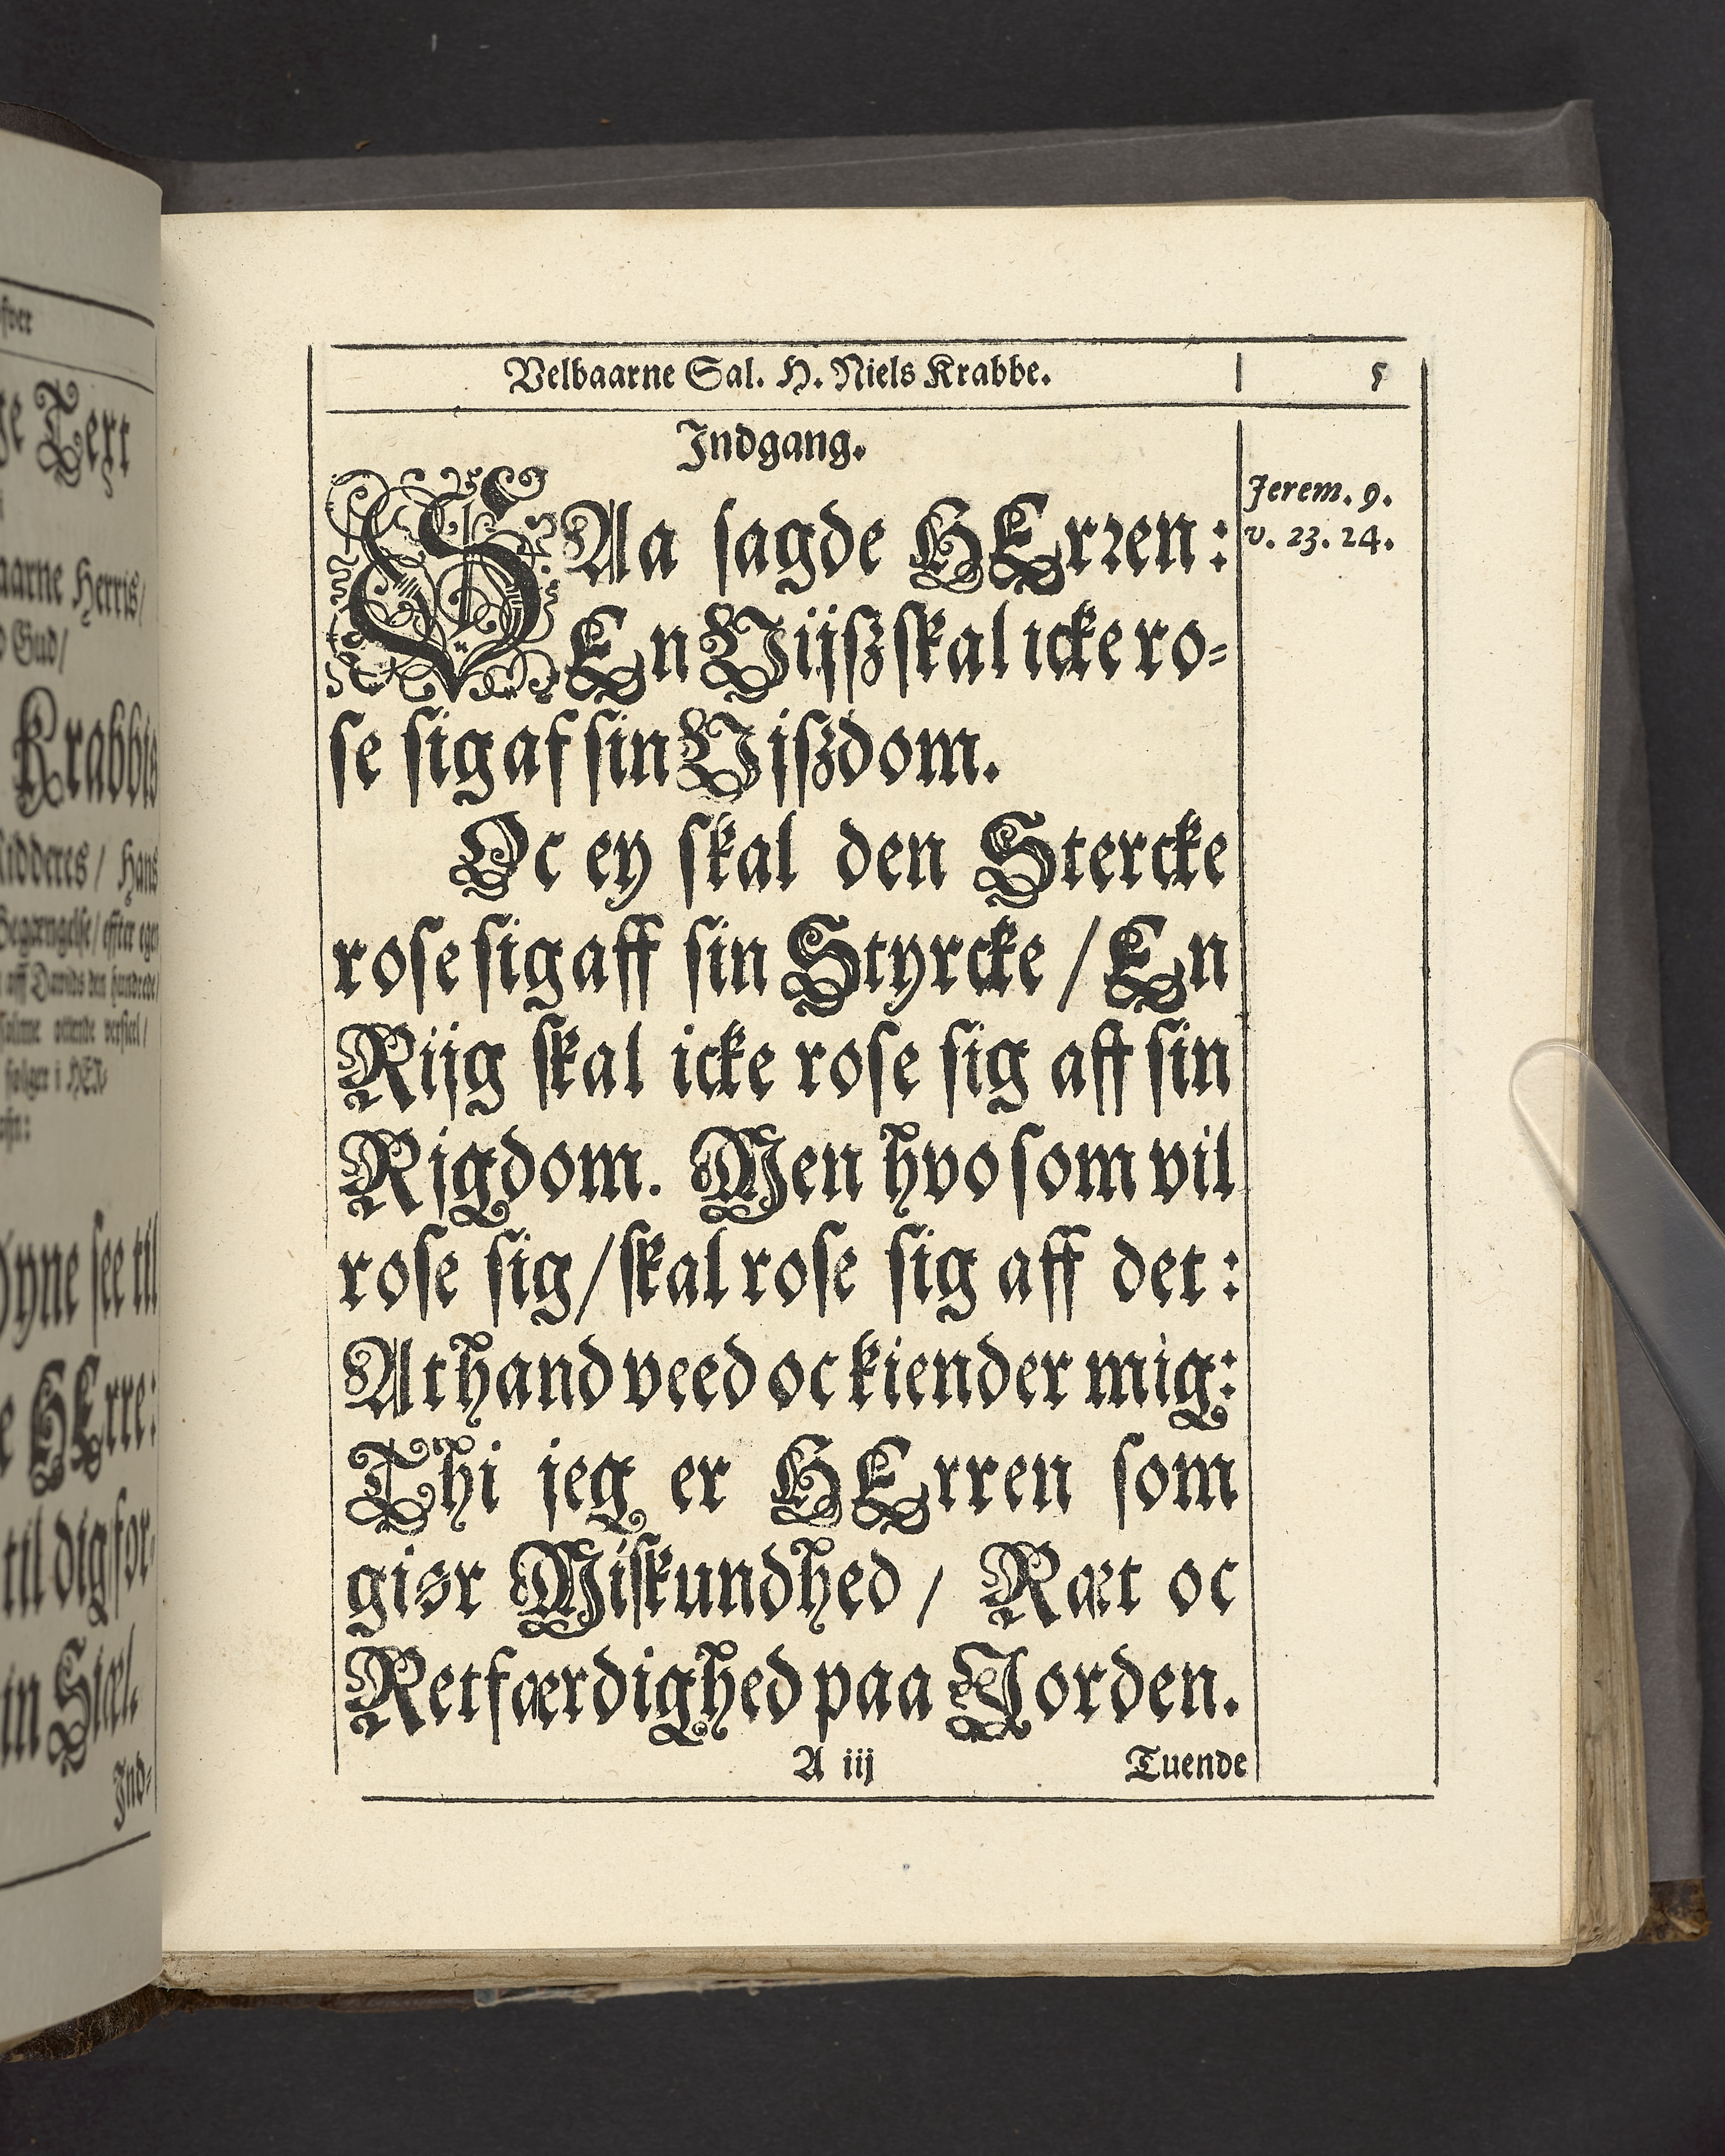 fver
ge Text
aarne Herris/
Gud/
Krabbis
Ridderes / Hans
Begængelse/ effter egen
aff Davids den hundrede/
Psalme ottende versicel/
følger i HEr-
Øyne see til
HErre:
til dig for-
min Siæl.
Ind-
Velbaarne Sal. H. Niels Krabbe.
5
Indgang.
SAa sagde HErren:
Jerem. 9.
v. 23. 24.
En Vijsz skal icke ro-
se sig af sin Vjszdom.
Oc ey skal den Stercke
rose sig aff sin Styrcke / En
Rijg skal icke rose sig aff sin
Rigdom. Men hvo som vil
rose sig / skal rose sig aff det:
At hand veed oc kiender mig:
Thi jeg er HErren som
giør Miskundhed / Ræt oc
Retfærdighed paa Jorden.
A iij
Tuende